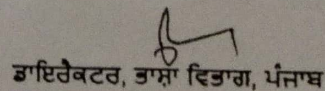 ਡਾਇਰੈਕਟਰ, ਭਾਸ਼ਾ ਵਿਭਾਗ, ਪੰਜਾਬ